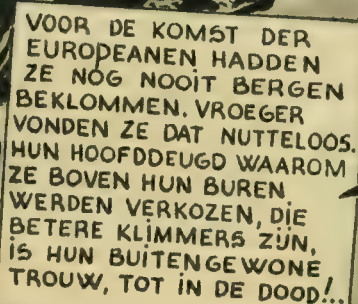 VOOR DE KOMST DER
EUROPEANEN HADDEN
ZE NOG NOOIT BERGEN
BEKLOMMEN. VROEGER
VONDEN ZE DAT NUTTELOOS.
HUN HOOFDDEUGD WAAROM
ZE BOVEN HUN BUREN
WERDEN VERKOZEN, DIE
BETERE KLIMMERS ZIJN,
IS HUN BUITENGEWONE
TROUW, TOT IN DE DOOD!..